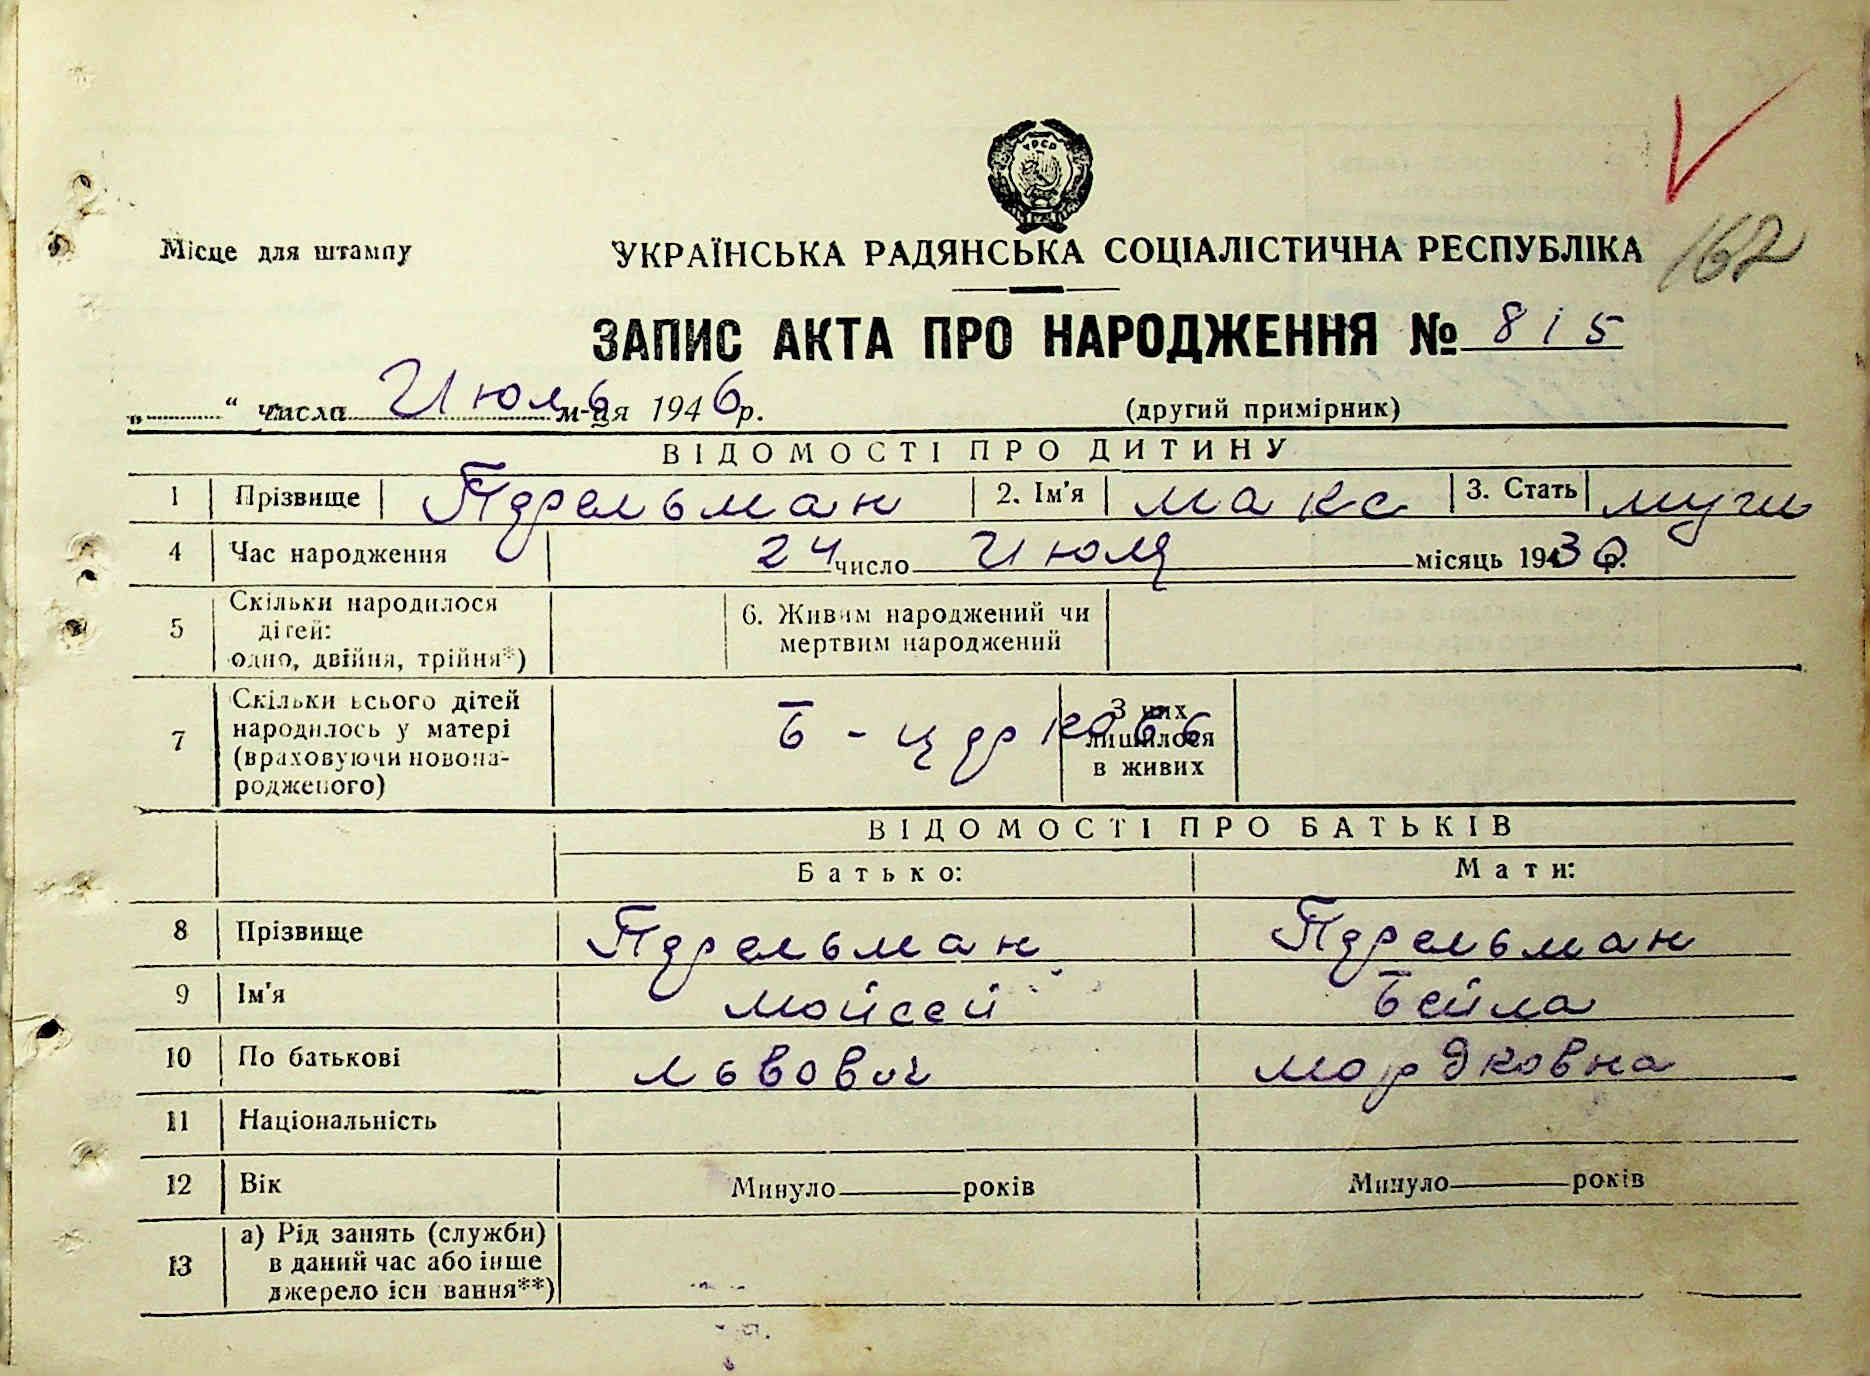 УРСР
Місце для штампу
УКРАЇНСЬКА РАДЯНСЬКА СОЦІАЛІСТИЧНА РЕСПУБЛІКА
162
ЗАПИС АКТА ПРО НАРОДЖЕННЯ № 815
„ “ числа Июль м-ця 1946 р. (другий примірник)
ВІДОМОСТІ ПРО ДИТИНУ
1 Прізвище Пдрельман 2. Ім'я Макс 3. Стать муж
4 Час народження 24 число Июля місяць 193 р.
5 Скільки народилося дітей: одно, двійня, трійня*) 6. Живим народжений чи мертвим народжений
7 Скільки всього дітей народилось у матері (враховуючи новонародженого) З них лишилося в живих
ВІДОМОСТІ ПРО БАТЬКІВ
Батько: Мати:
8 Прізвище Пдрельман Пдрельман
9 Ім'я Мойсей Бейла
10 По батькові Львович Мордковна
11 Національність
12 Вік Минуло років Минуло років
13 а) Рід занять (служби) в даний час або інше джерело існ вання**)